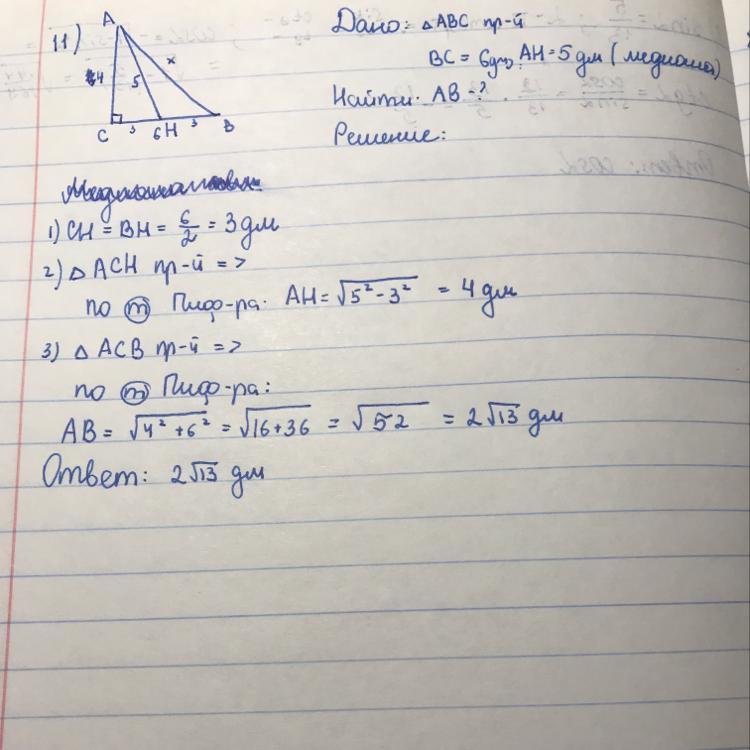 11)
Дано: △ABC пр-й
BC = 6 дм, AH = 5 дм (медиана)
Найти: AB - ?
Решение:
A
4
5
x
C
3
6
H
3
B
1) CH = BH = 6/2 = 3 дм
2) △ ACH пр-й =>
по т Пифо-ра: AH = √5² - 3² = 4 дм
3) △ ACB пр-й =>
по т Пифо-ра:
AB = √4² + 6² = √16 + 36 = √52 = 2√13 дм
Ответ: 2√13 дм